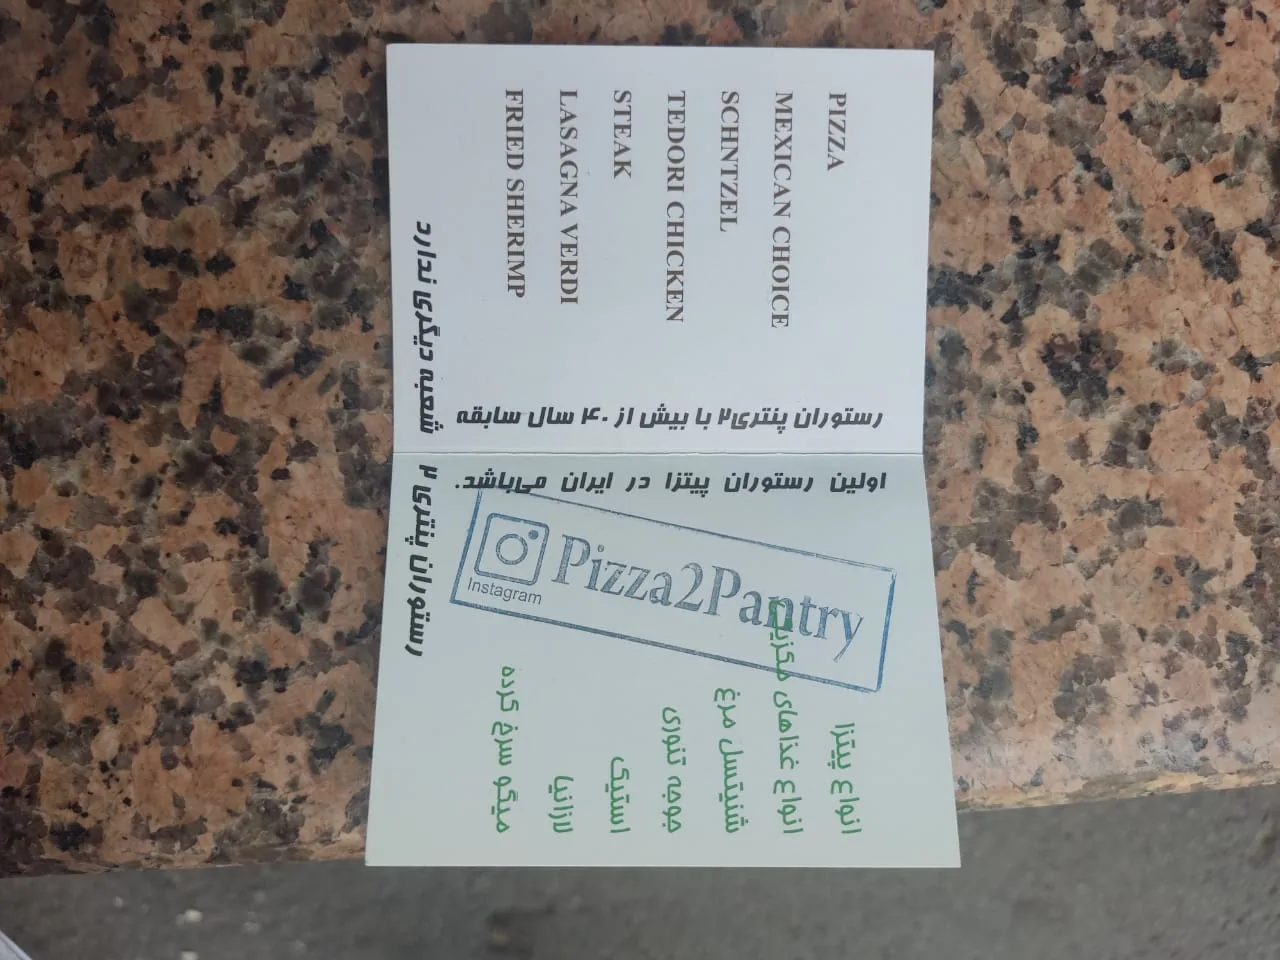 PIZZA
MEXICAN CHOICE
SCHNTZEL
TEDORI CHICKEN
STEAK
LASAGNA VERDI
FRIED SHERIMP
انواع پیتزا
انواع غذاهای مکزیکی
شنیتسل مرغ
جوجه تنوری
استیک
لازانیا
میگو سرخ کرده
رستوران پنتری ۲ شعبه دیگری ندارد
رستوران پنتری۲ با بیش از ۴۰ سال سابقه
اولین رستوران پیتزا در ایران می‌باشد.
Instagram
Pizza2Pantry